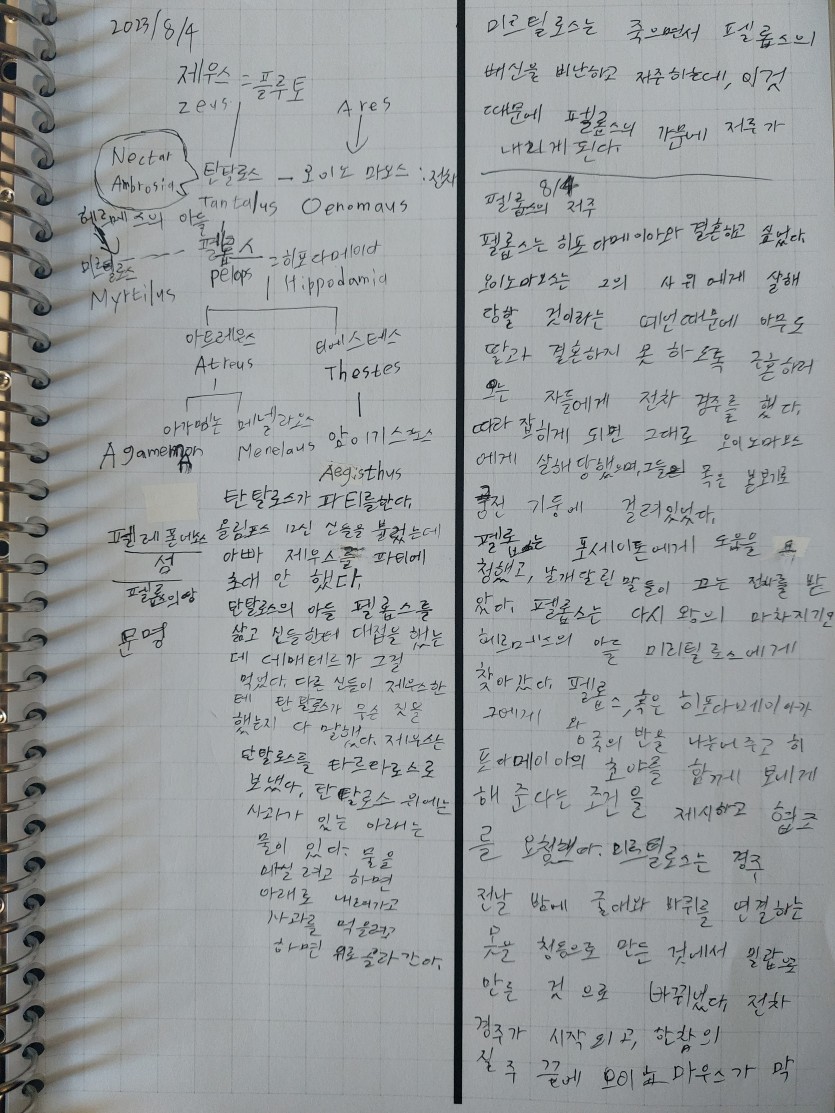 2023/8/4
제우스 = 플루토
Zeus
Ares
Nectar
Ambrosia
탄탈로스 - 오이노 마오스 : 전차
Tantalus Oenomaus
헤르메스의 아들
미르틸로스
Myrtilus
펠롭스 = 히포다메이아
Pelops Hippodamia
아트레우스 티에스테스
Atreus Thestes
아가멤논 메넬라오스
Agamemnon Menelaus
아이기스토스
Aegisthus
탄탈로스가 파티를한다.
올림포스 12신 신들을 불렀는데
아빠 제우스를 파티에
초대 안 했다.
탄탈로스의 아들 펠롭스를
삶고 신들한테 대접을 했는
데 데매테르가 그걸
먹었다. 다른 신들이 제우스한
테 탄탈로스가 무슨 짓을
했는지 다 말했다. 제우스는
탄탈로스를 타르타로스로
보냈다. 탄탈로스 위에는
사과가 있는 아래는
물이 있다. 물을
마실려고 하면
아래로 내려가고
사과를 먹을려고
하면 위로 올라간다.
펠레폰네소스
섬
펠롭스의 땅
문명
미르틸로스는 죽으면서 펠롭스의
배신을 비난하고 저주하는데, 이것
때문에 펠롭스의 가문에 저주가
내리게 된다.
8/4
펠롭스의 저주
펠롭스는 히포다메이아와 결혼하고 싶었다.
오이노마오스는 그의 사위에게 살해
당할 것이라는 예언때문에 아무도
딸과 결혼하지 못 하도록 구혼하러
오는 자들에게 전차 경주를 했다.
따라 잡히게 되면 그대로 오이노마오스
에게 살해 당했으며, 그들의 목은 본보기로
궁전 기둥에 걸려있었다.
펠롭스는 포세이돈에게 도움을 요
청했고, 날개 달린 말들이 끄는 전차를 받
았다. 펠롭스는 다시 왕의 마차지기인
헤르메스의 아들 미리틸로스에게
찾아갔다. 펠롭스, 혹은 히포다메이아가
그에게 왕국의 반을 나누어 주고 히
포다메이아의 초야를 함께 보내게
해 준다는 조건을 제시하고 협조
를 요청했다. 미르틸로스는 경주
전날 밤에 굴대와 바퀴를 연결하는
못을 청동으로 만든 것에서 밀랍으로
만든 것으로 바꿔놨다. 전차
경주가 시작 되고, 한참의
질주 끝에 오이노마우스가 막